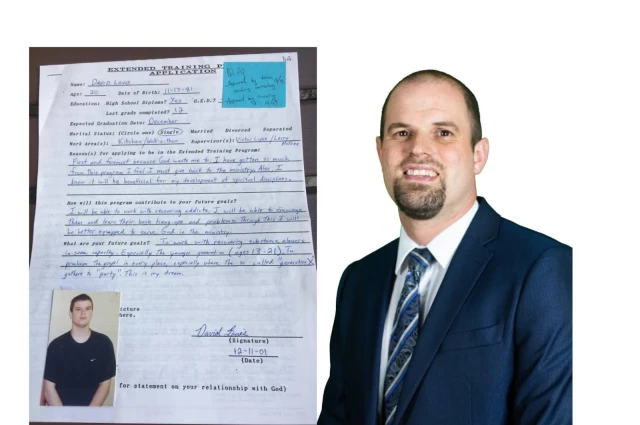 EXTENDED TRAINING P
APPLICATION
Name: David
Age: 20 Date of Birth: 11-13-81
Education: High School Diploma? Yes G.E.D.?
Last grade completed? 12
Expected Graduation Date: December
Marital Status: (Circle one) Single Married Divorced Separated
Work area(s): Kitchen Supervisor(s): / Larry
Reasons for applying to be in the Extended Training Program:
First and foremost because God wants me to. I have gotten so much
from this program I feel I must give back to the ministry. Also, I
know it will be beneficial for my development of spiritual disciplines.
How will this program contribute to your future goals?
I will be able to work with recovering addicts. I will be able to encourage
them and learn their hang ups and problems. Through this I will
be better equipped to serve God in the ministry.
What are your future goals? To work with recovering substance abusers
in some capacity. Especially the younger generation (ages 13-21). The
problem is every place, especially where the so called "generation X
gathers to "party". This is my dream.
icture
here.
David
(Signature)
12-11-01
(Date)
for statement on your relationship with God)